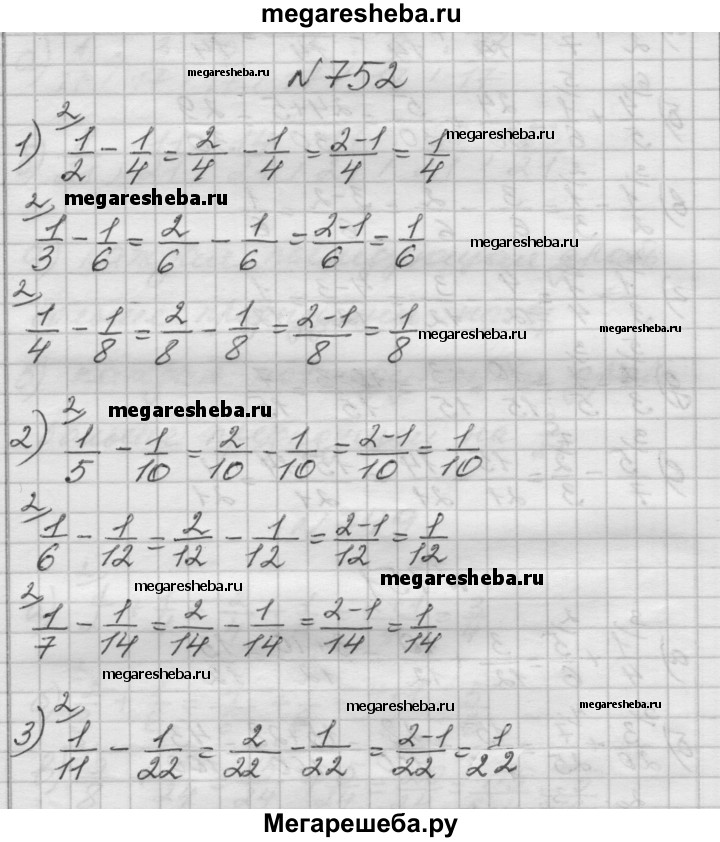 megaresheba.ru
megaresheba.ru №752
1) 1/2 - 1/4 = 2/4 - 1/4 = (2-1)/4 = 1/4 megaresheba.ru
2
megaresheba.ru
2
1/3 - 1/6 = 2/6 - 1/6 = (2-1)/6 = 1/6 megaresheba.ru
2
1/4 - 1/8 = 2/8 - 1/8 = (2-1)/8 = 1/8 megaresheba.ru megaresheba.ru
2 megaresheba.ru
2) 1/5 - 1/10 = 2/10 - 1/10 = (2-1)/10 = 1/10
2
1/6 - 1/12 = 2/12 - 1/12 = (2-1)/12 = 1/12
megaresheba.ru megaresheba.ru
2
1/7 - 1/14 = 2/14 - 1/14 = (2-1)/14 = 1/14
megaresheba.ru
2 megaresheba.ru megaresheba.ru
3) 1/11 - 1/22 = 2/22 - 1/22 = (2-1)/22 = 1/22
Мегарешеба.ру